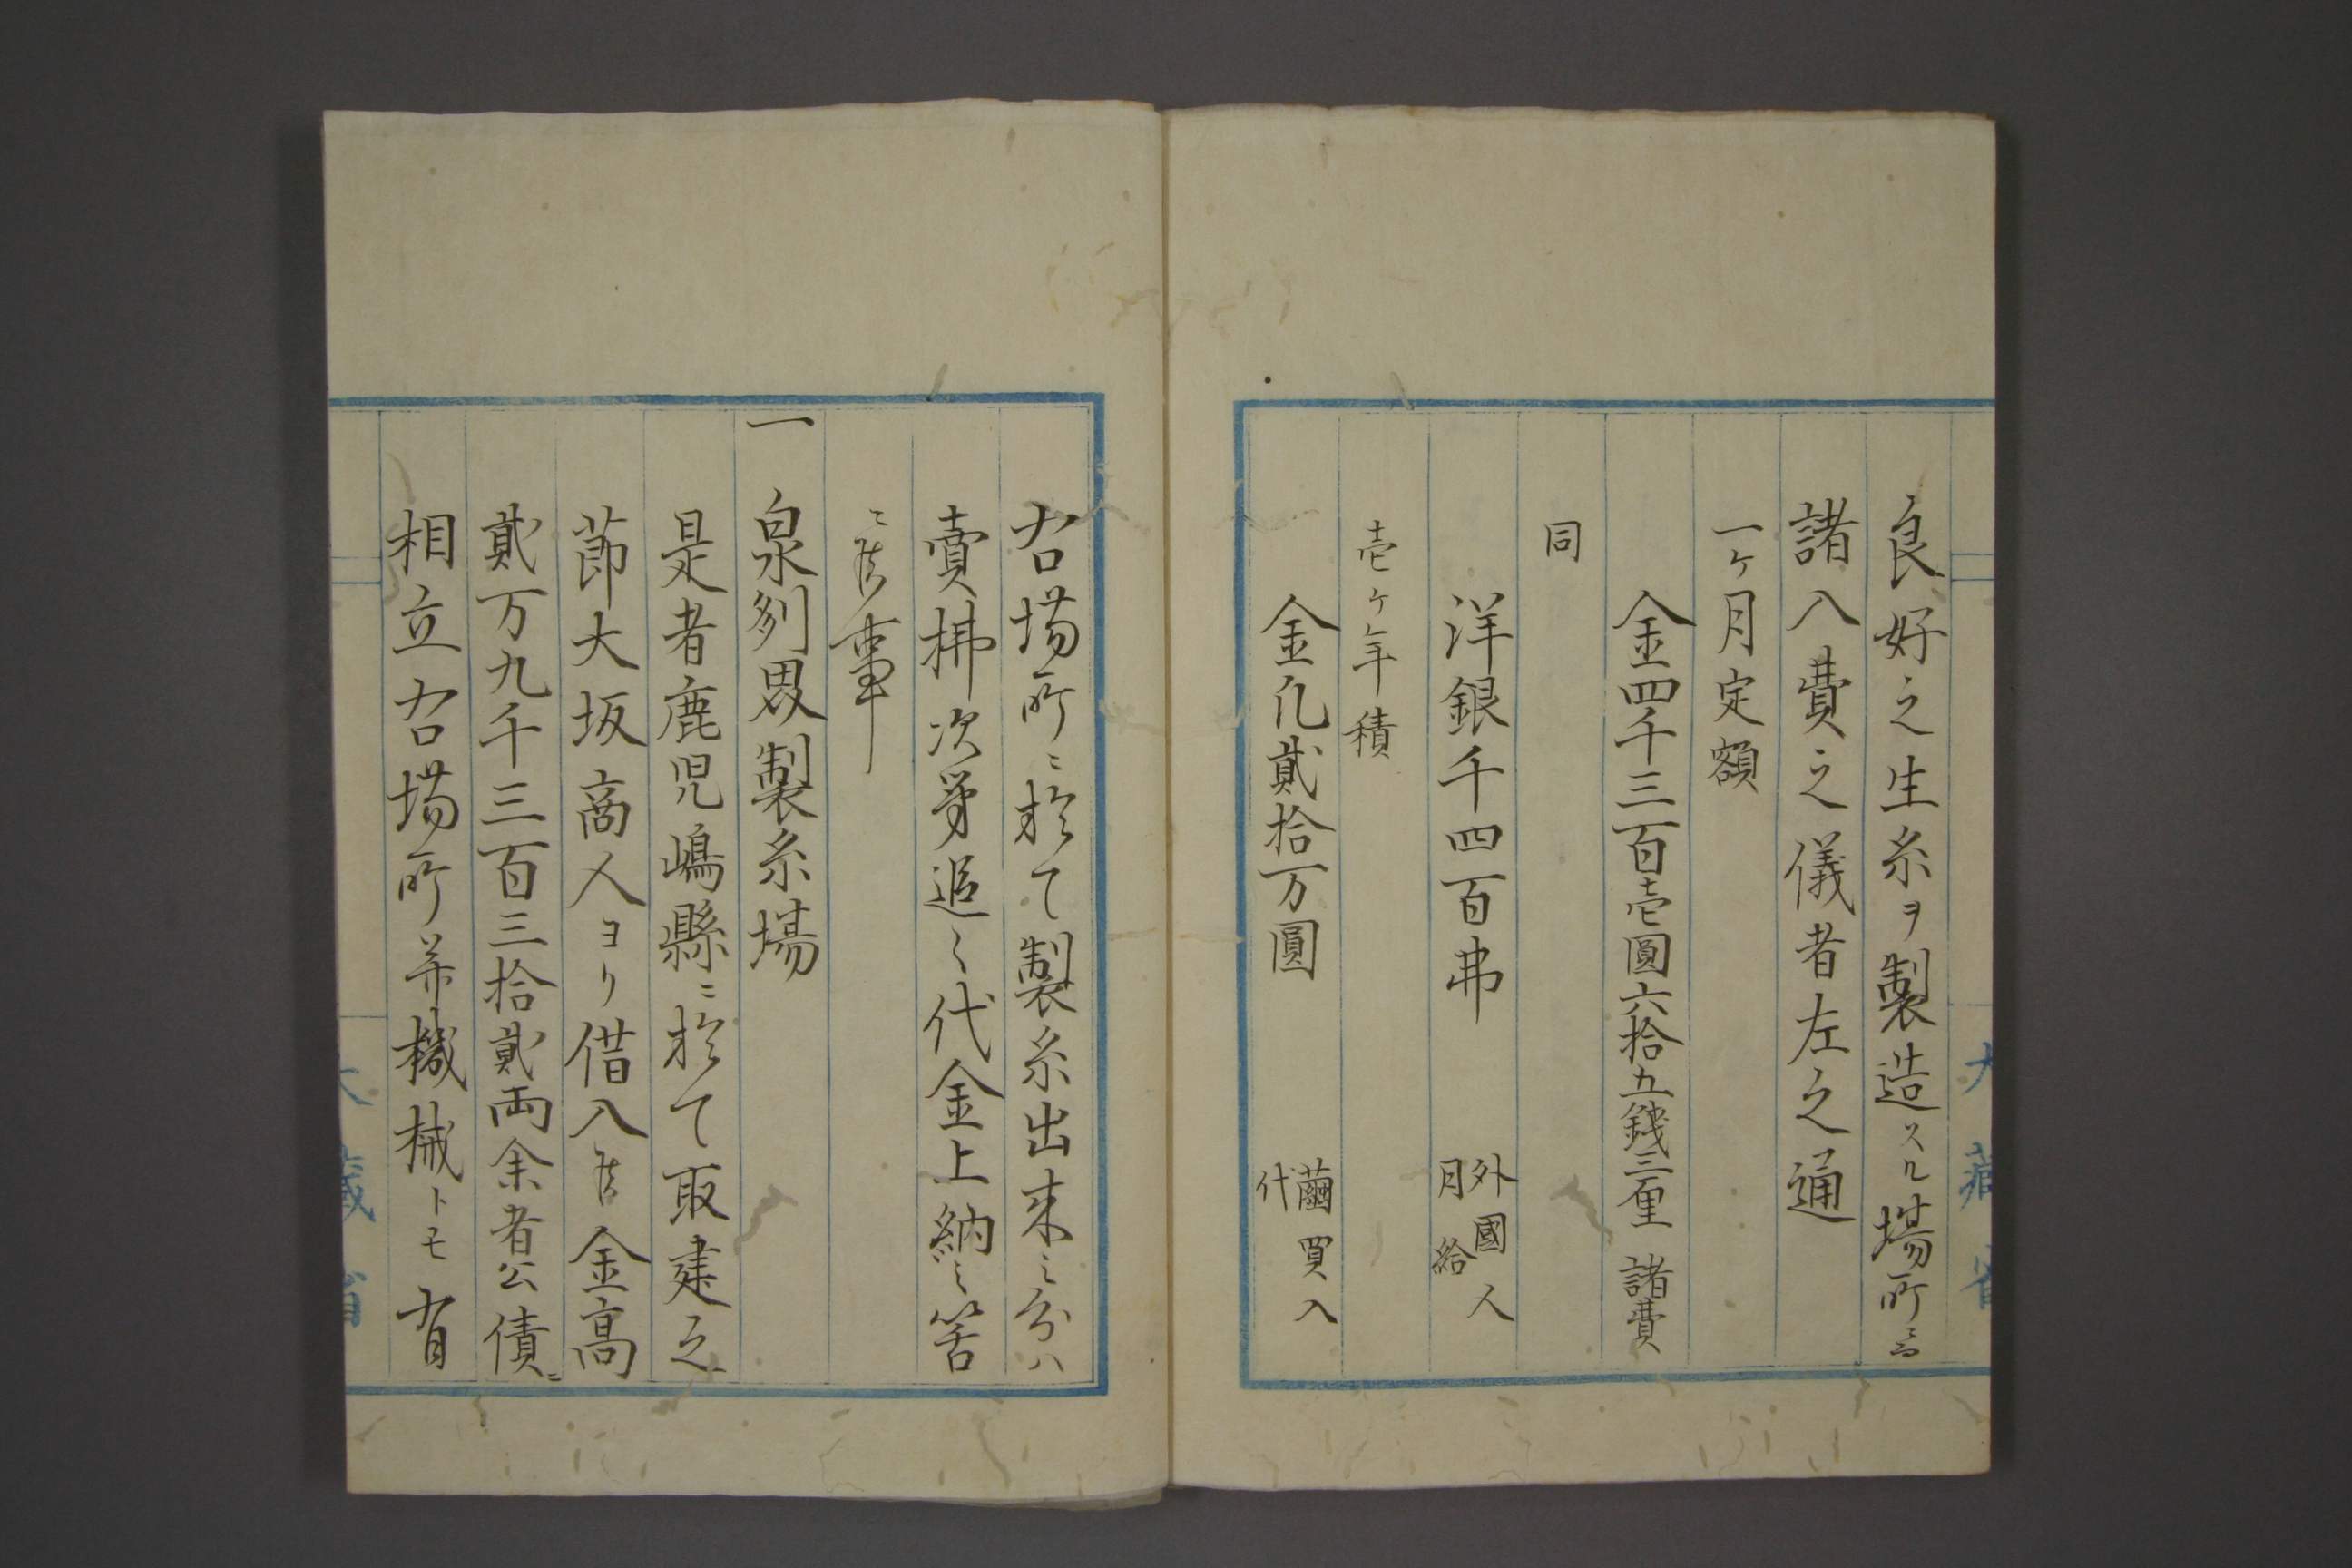 良好之生糸ヲ製造スル場所ニ而
諸入費之儀者左之通
一ケ月定額
金四千三百壱圓六拾五錢三厘 諸費
同
洋銀千四百弗 外國人
月給
壱ケ年積
金凡貳拾万圓 繭買入
代
右場所ニ於て製糸出来之分ハ
賣拂次第追々代金上納之筈
ニ候事
一 泉州堺製糸場
是者鹿児嶋縣ニ於て取建之
節大坂商人ヨリ借入候金高
貳万九千三百三拾貳両余者公債ニ
相立右場所并機械トモ有
大藏省
大藏省